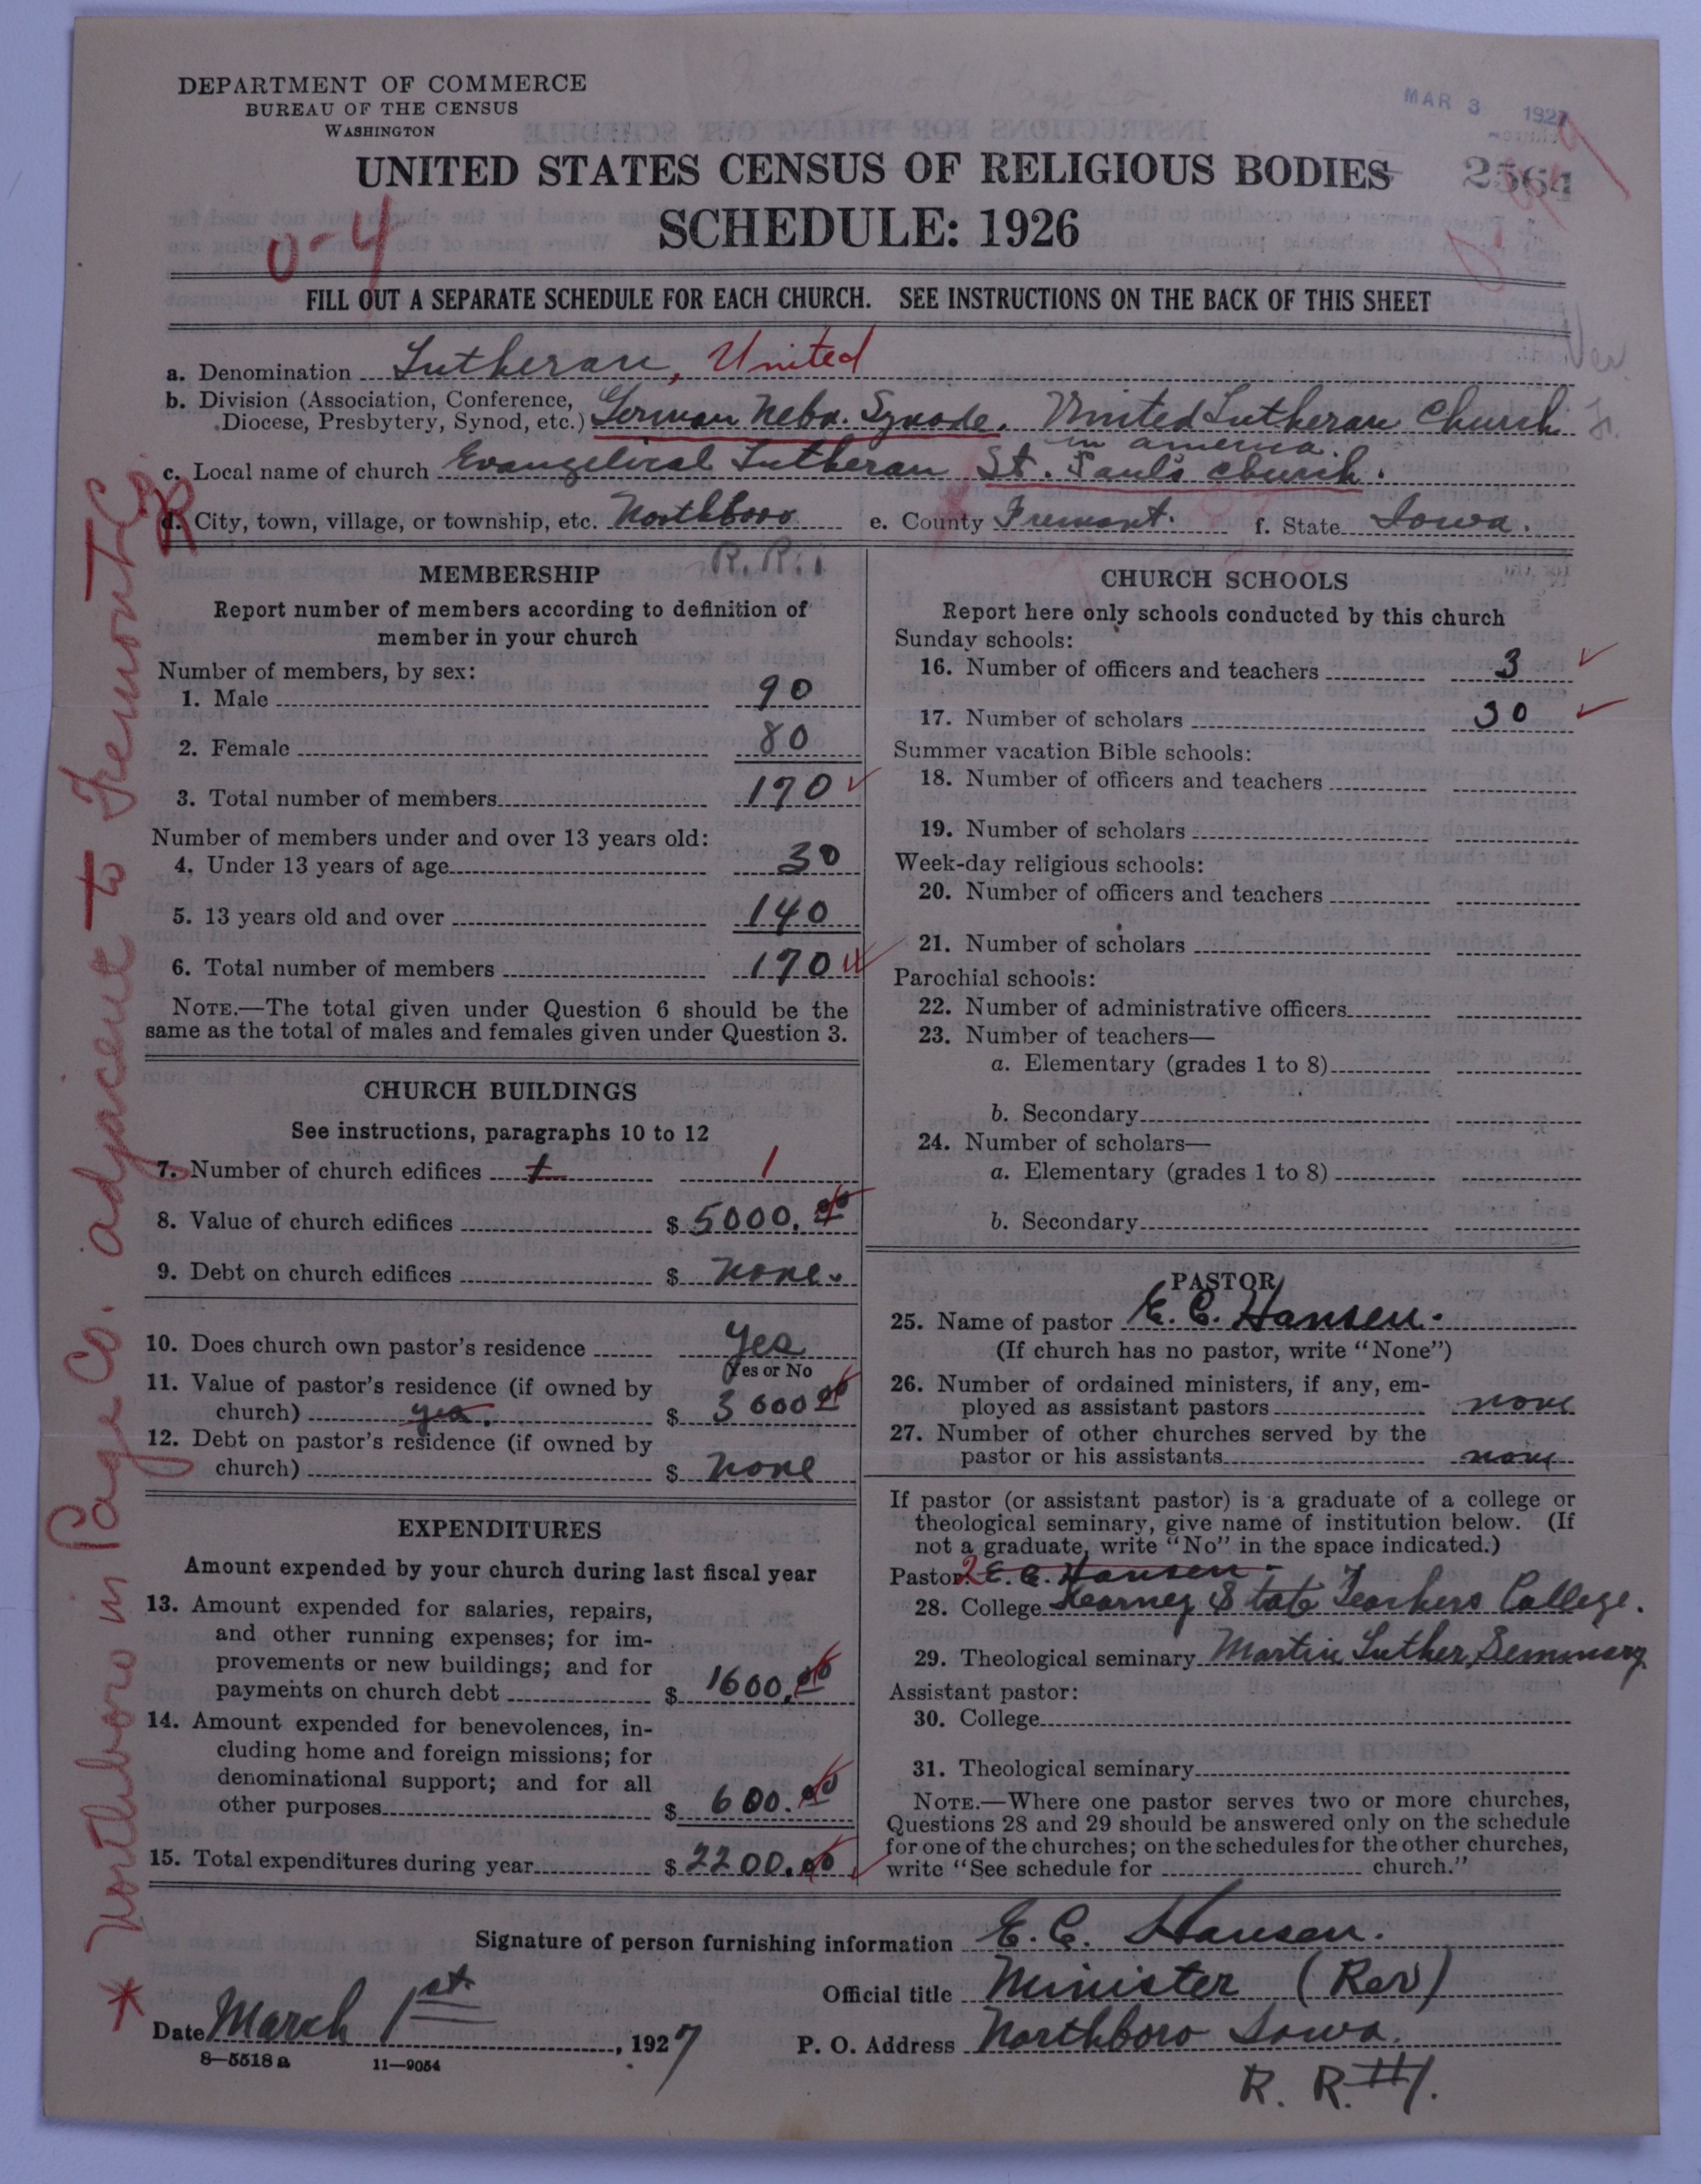 DEPARTMENT OF COMMERCE
BUREAU OF THE CENSUS
WASHINGTON
MAR 3 1927
UNITED STATES CENSUS OF RELIGIOUS BODIES
2564
SCHEDULE: 1926
0-4
FILL OUT A SEPARATE SCHEDULE FOR EACH CHURCH. SEE INSTRUCTIONS ON THE BACK OF THIS SHEET
a. Denomination Lutheran, United
b. Division (Association, Conference, Diocese, Presbytery, Synod, etc.) German Nebr. Synode. United Lutheran Church
in america.
c. Local name of church Evangelical Lutheran St. Paul's church.
d. City, town, village, or township, etc. Northboro e. County Fremont. f. State Iowa.
R.R.1
MEMBERSHIP
Report number of members according to definition of
member in your church
Number of members, by sex:
1. Male 90
2. Female 80
3. Total number of members 170
Number of members under and over 13 years old:
4. Under 13 years of age 30
5. 13 years old and over 140
6. Total number of members 170
NOTE.—The total given under Question 6 should be the
same as the total of males and females given under Question 3.
CHURCH BUILDINGS
See instructions, paragraphs 10 to 12
7. Number of church edifices 1 1
8. Value of church edifices $ 5000.00
9. Debt on church edifices $ none.
10. Does church own pastor's residence Yes
(Yes or No
11. Value of pastor's residence (if owned by
church) yes. $ 3000 00
12. Debt on pastor's residence (if owned by
church) $ none
EXPENDITURES
Amount expended by your church during last fiscal year
13. Amount expended for salaries, repairs,
and other running expenses; for im-
provements or new buildings; and for
payments on church debt $ 1600.00
14. Amount expended for benevolences, in-
cluding home and foreign missions; for
denominational support; and for all
other purposes $ 600.00
15. Total expenditures during year $ 2200.00
CHURCH SCHOOLS
Report here only schools conducted by this church
Sunday schools:
16. Number of officers and teachers 3
17. Number of scholars 30
Summer vacation Bible schools:
18. Number of officers and teachers
19. Number of scholars
Week-day religious schools:
20. Number of officers and teachers
21. Number of scholars
Parochial schools:
22. Number of administrative officers
23. Number of teachers—
a. Elementary (grades 1 to 8)
b. Secondary
24. Number of scholars—
a. Elementary (grades 1 to 8)
b. Secondary
PASTOR
25. Name of pastor E. C. Hansen.
(If church has no pastor, write "None")
26. Number of ordained ministers, if any, em-
ployed as assistant pastors none
27. Number of other churches served by the
pastor or his assistants none
If pastor (or assistant pastor) is a graduate of a college or
theological seminary, give name of institution below. (If
not a graduate, write "No" in the space indicated.)
Pastor: 2 E. C. Hansen.
28. College Kearney State Teachers College.
29. Theological seminary Martin Luther Seminary
Assistant pastor:
30. College
31. Theological seminary
NOTE.—Where one pastor serves two or more churches,
Questions 28 and 29 should be answered only on the schedule
for one of the churches; on the schedules for the other churches,
write "See schedule for church."
Signature of person furnishing information E. C. Hansen.
Official title Minister (Rev)
Date March 1st, 1927 P. O. Address Northboro Iowa.
8—5518 a 11—9054
R. R. #1.
* Northboro in Page Co. adjacent to Fremont Co.
R